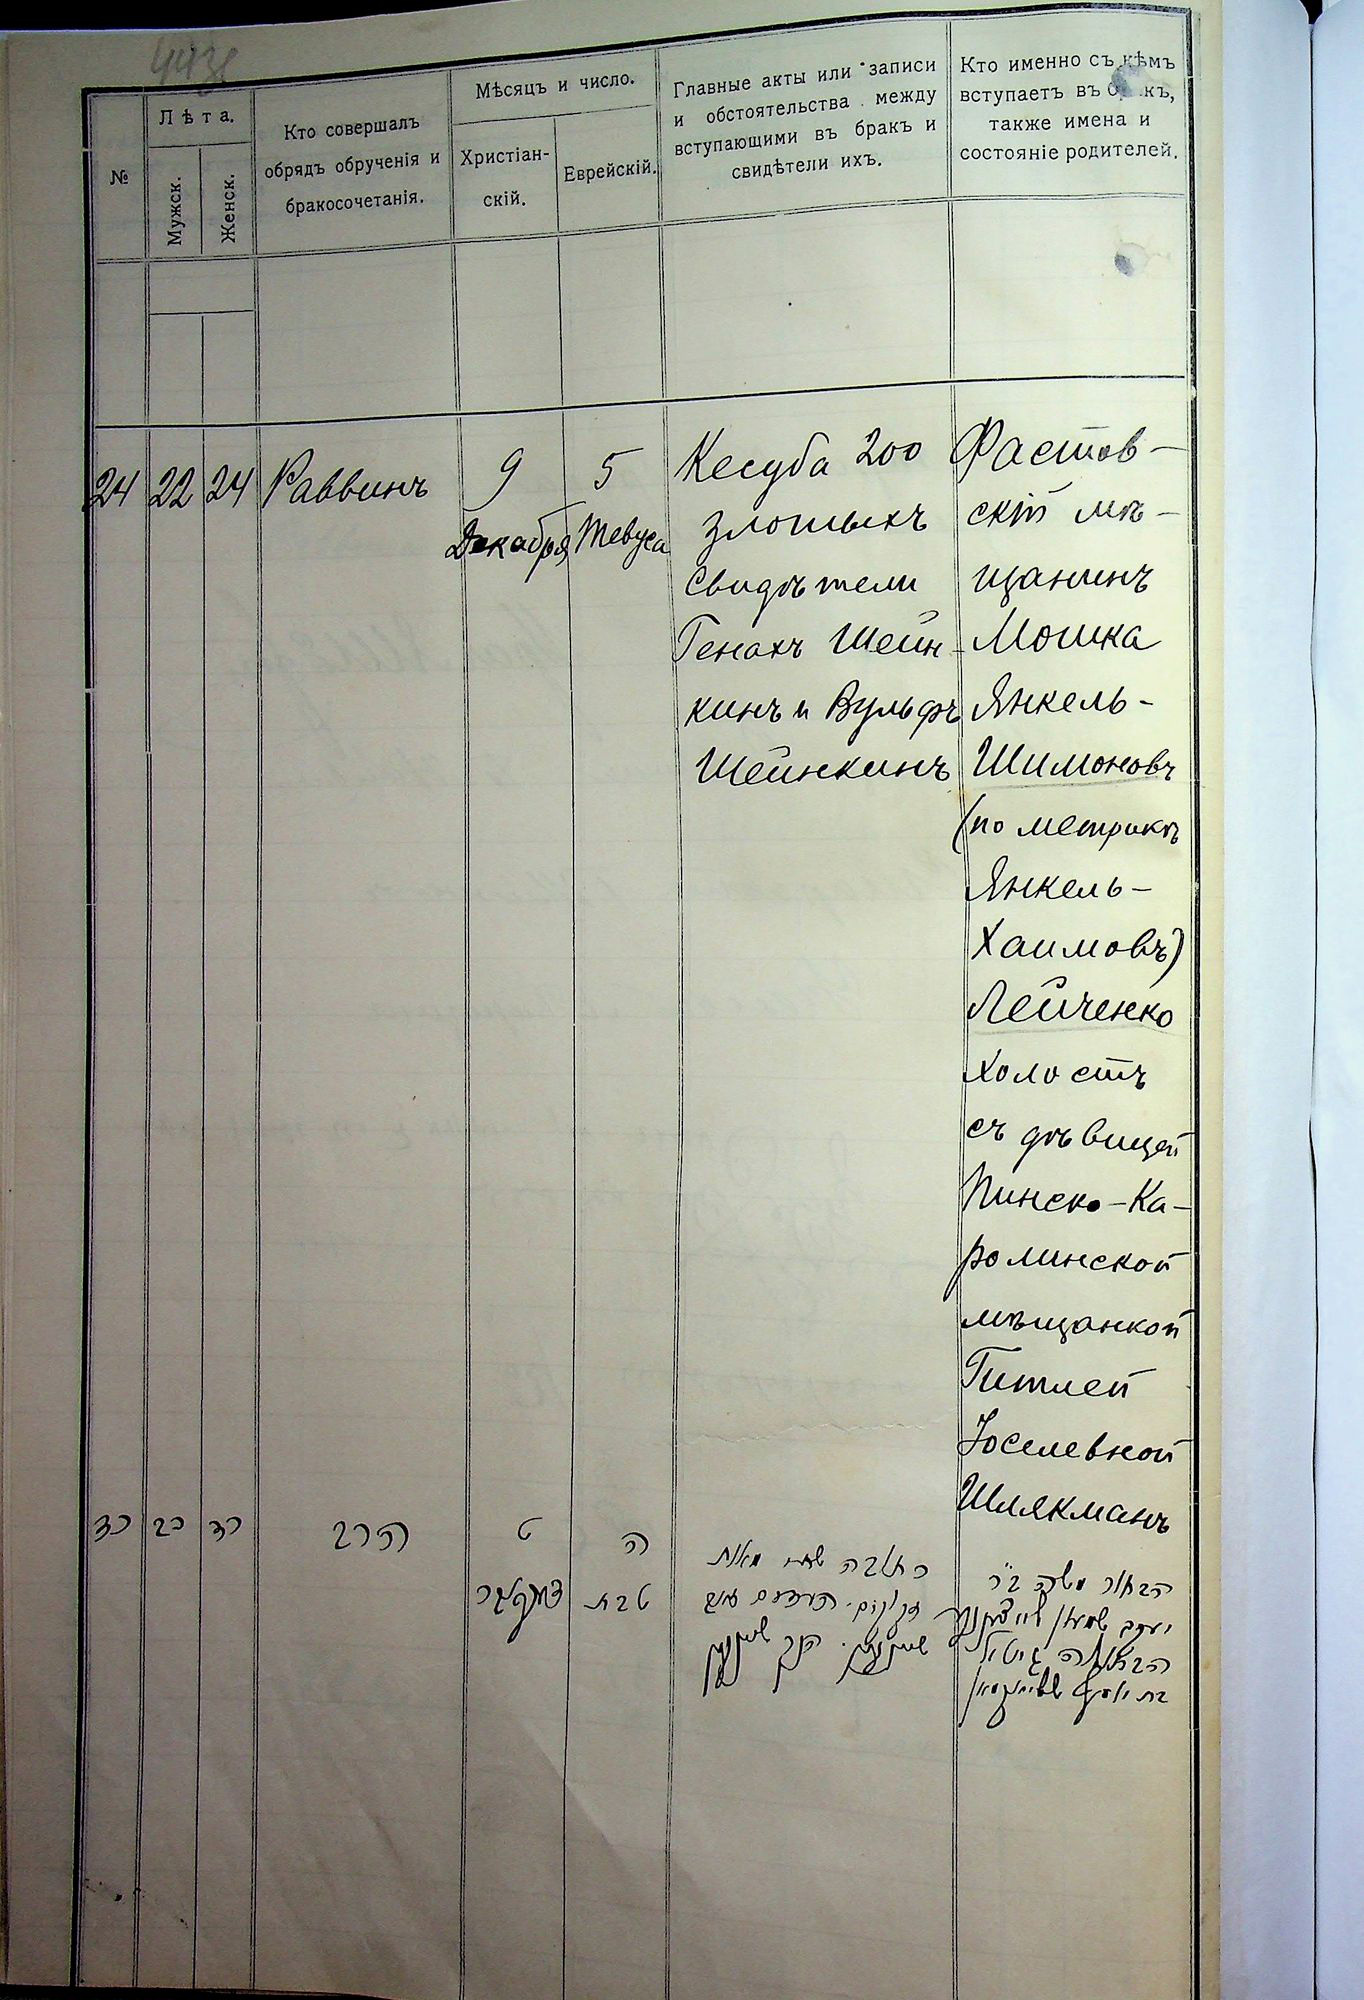 443
№
Лѣта.
Мужск.
Женск.
Кто совершалъ
обрядъ обрученія и
бракосочетанія.
Мѣсяцъ и число.
Христіан-
скій.
Еврейскій.
Главные акты или записи
и обстоятельства между
вступающими въ бракъ и
свидѣтели ихъ.
Кто именно съ кѣмъ
вступаетъ въ бракъ,
также имена и
состояніе родителей.
24
22
24
Раввинъ
9
Декабря
5
Тевуса
Кесуба 200
злотыхъ
Свидѣтели
Генахъ Шейн-
кинъ и Вульфъ
Шейнкинъ
Фастов-
скій мѣ-
щанинъ
Мошка
Янкель-
Шимоновъ
(по метрикѣ
Янкель-
Хаимовъ)
Лейченко
холостъ
съ дѣвицей
Пинско-Ка-
ролинской
мѣщанкой
Гитлей
Іоселевной
Шлякманъ
כד
כב
כד
הרב
ט
דעקאבר
ה
טבת
כתובה שתי מאות
זהובים. העדים
הבחור משה ב״ר
יעקב שמעון
הבתולה גיטל
בת יוסף שליאקמאן